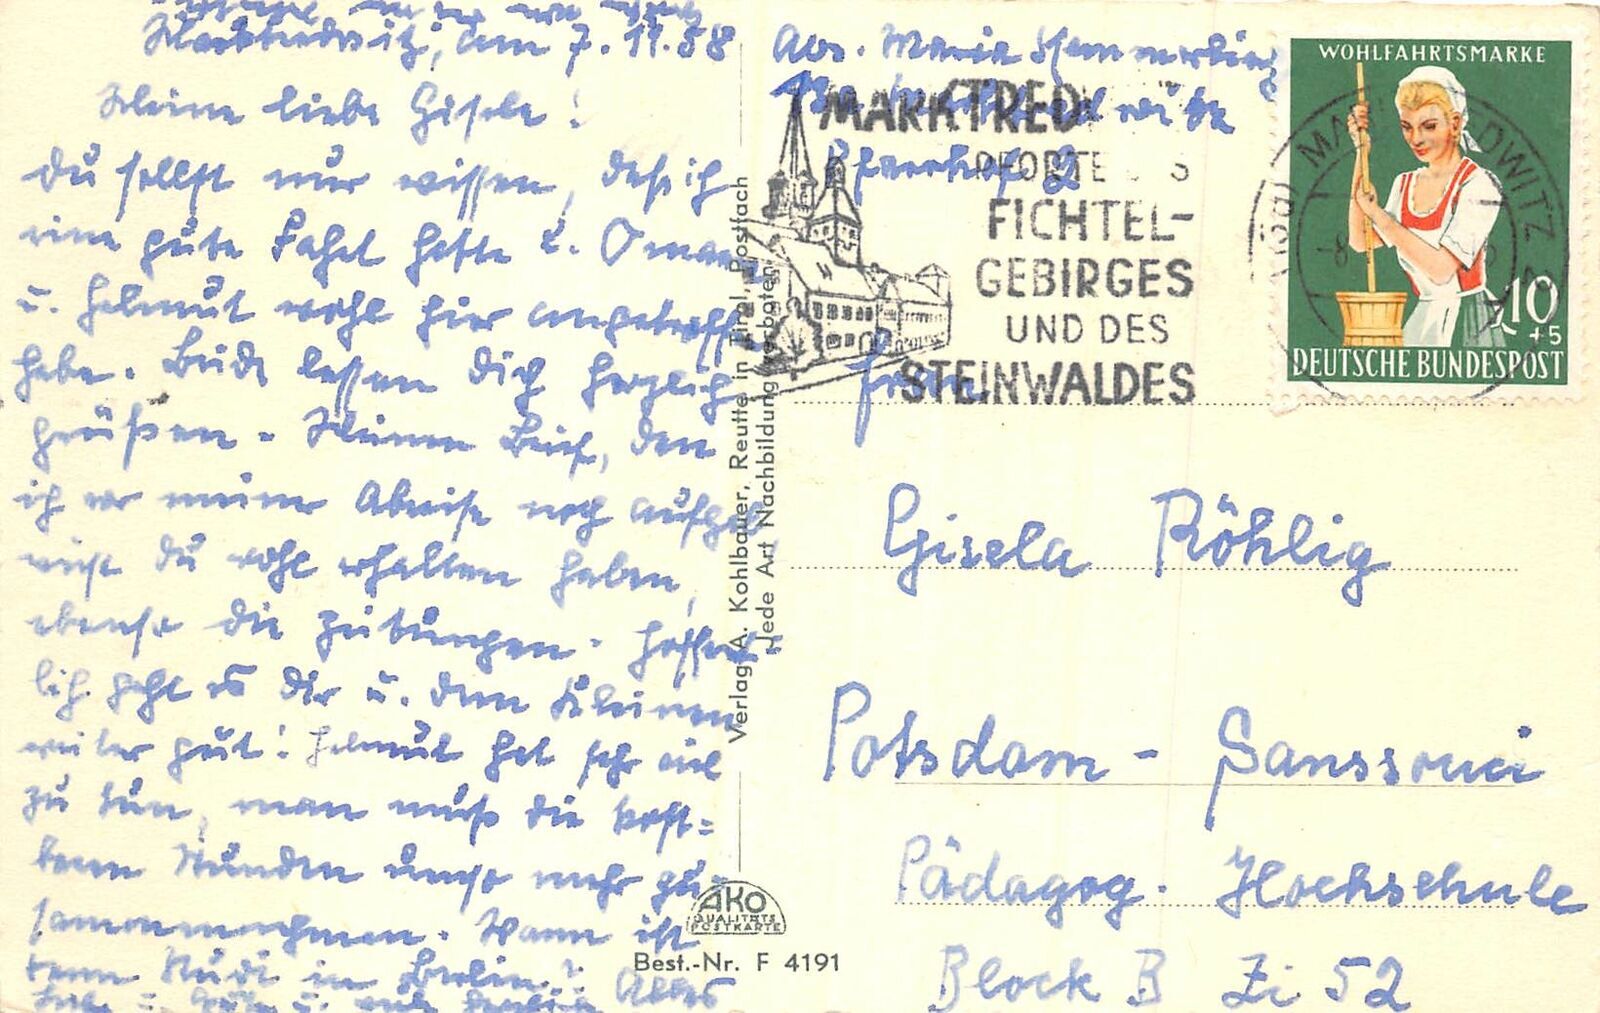 Marktredwitz, am 7.11.58
Meine liebe Gisela!
Du sollst nur wissen, daß ich
eine gute Fahrt hatte u. Omama
u. Helmut wohl hier angetroffen
habe. Beide lassen Dich herzlich
grüßen. Meinen Brief, den
ich vor meiner Abreise noch aufgab,
wirst Du wohl erhalten haben,
ebenso die Zeitungen. Hoffent-
lich geht es Dir u. dem Kleinen
weiter gut! Helmut hat sehr viel
zu tun, man muß die kost=
baren Stunden umso mehr zu-
sammennehmen. Wann ist
denn Rudi in Berlin? Alles
Liebe u. Gute u. viele herzliche
Abs. Maria Hemmerling
Pfarrhof 2
MARKTRED
PFORTE
FICHTEL-
GEBIRGES
UND DES
STEINWALDES
WOHLFAHRTSMARKE
10
+5
DEUTSCHE BUNDESPOST
Frau
Gisela Röhlig
Potsdam - Sanssouci
Pädagog. Hochschule
Block B Zi 52
Verlag A. Kohlbauer, Reutte in Tirol, Postfach
Jede Art Nachbildung verboten
AKO
QUALITÄTS
POSTKARTE
Best.-Nr. F 4191